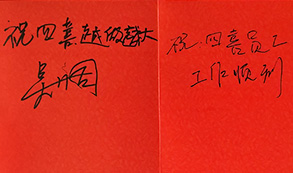 祝四喜越做越大
祝四喜员工
工作顺利